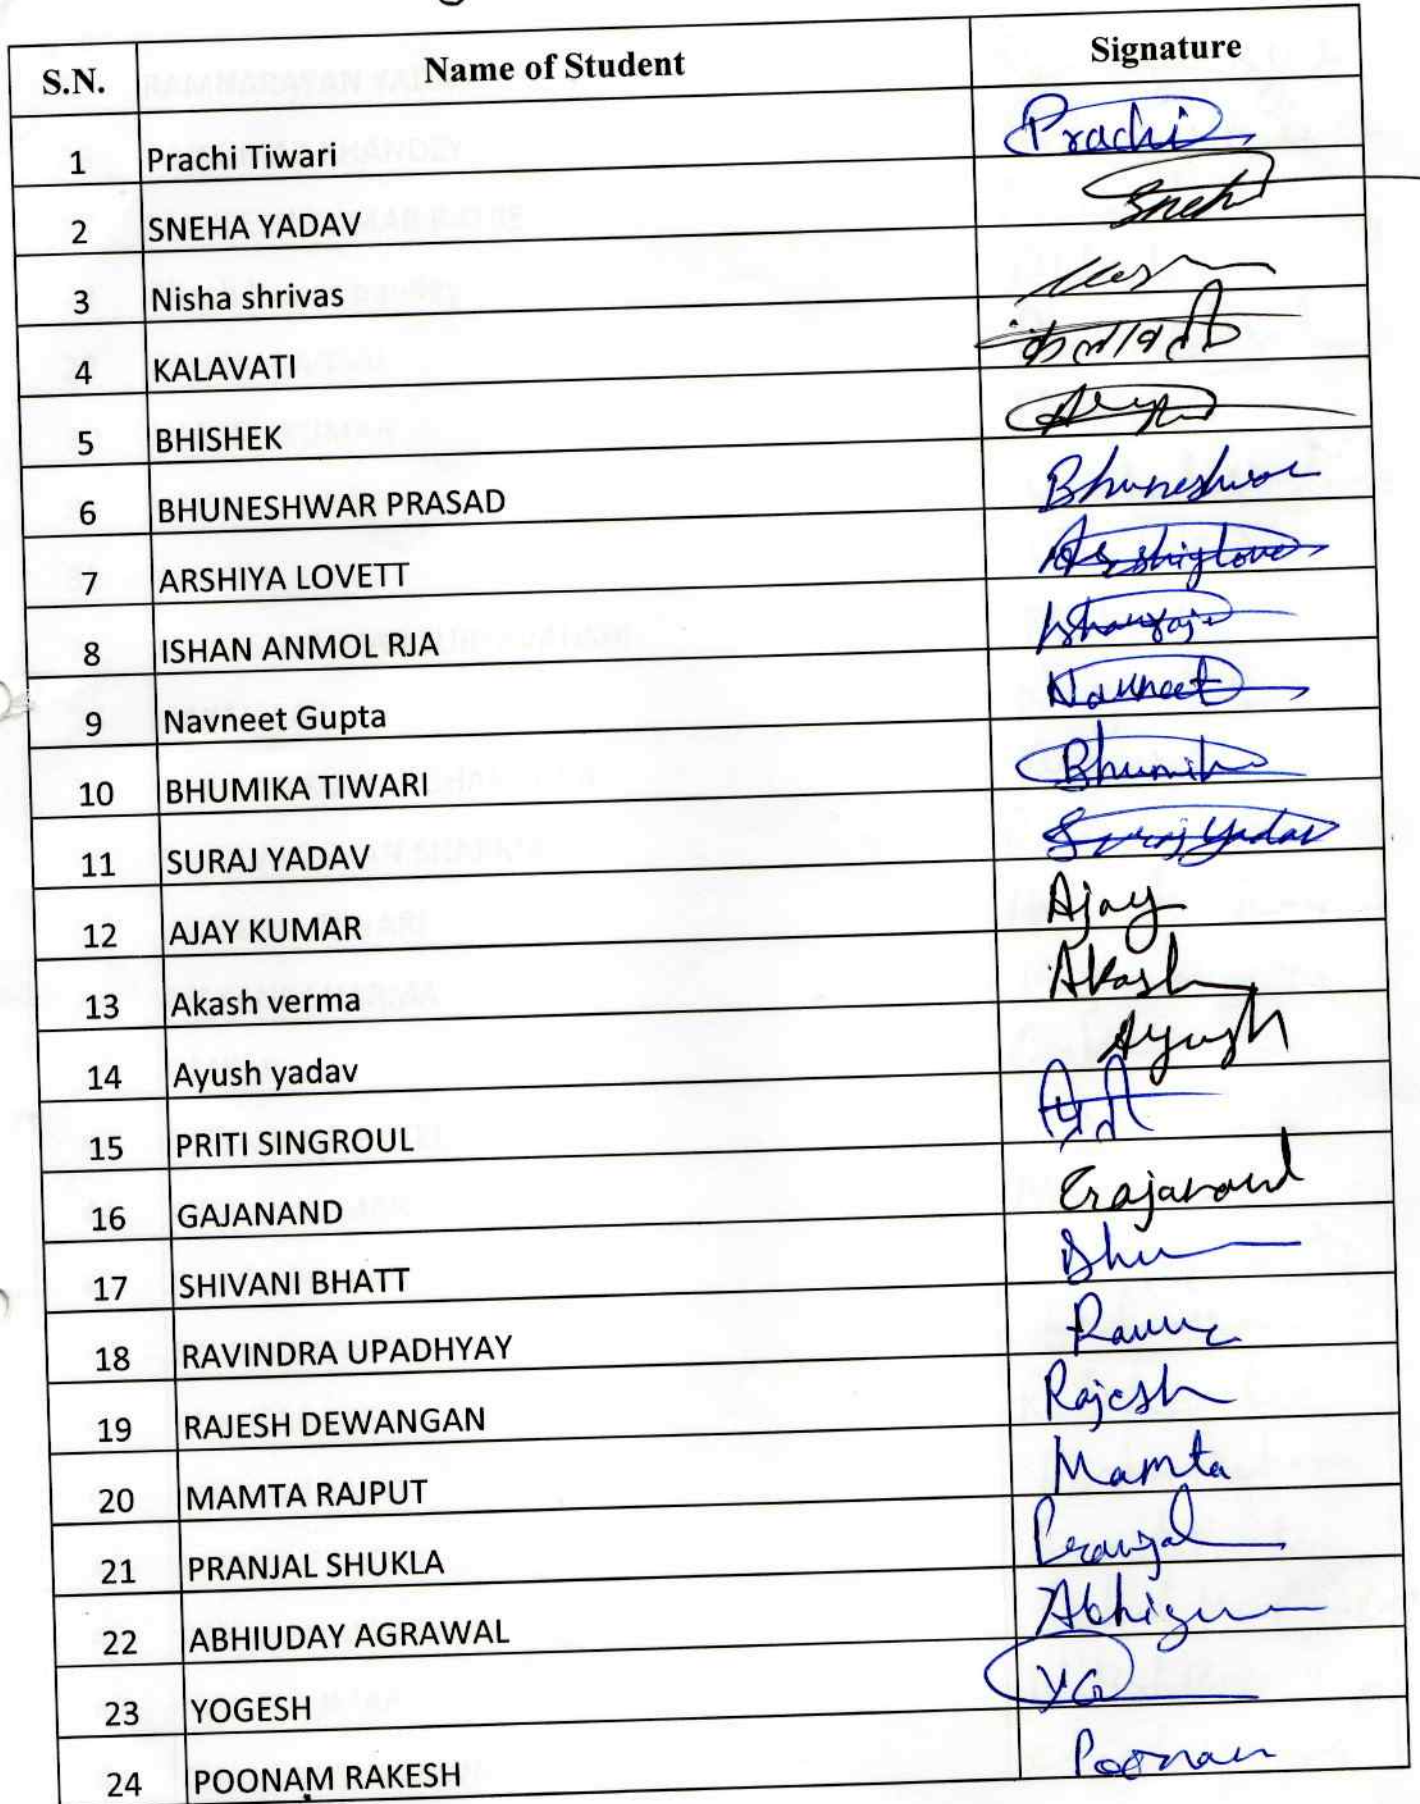 S.N. Name of Student Signature
1 Prachi Tiwari Prachi
2 SNEHA YADAV Sneha
3 Nisha shrivas
4 KALAVATI कलावती
5 BHISHEK
6 BHUNESHWAR PRASAD Bhuneshwar
7 ARSHIYA LOVETT
8 ISHAN ANMOL RJA
9 Navneet Gupta Navneet
10 BHUMIKA TIWARI Bhumika
11 SURAJ YADAV Suraj Yadav
12 AJAY KUMAR Ajay
13 Akash verma Akash
14 Ayush yadav Ayush
15 PRITI SINGROUL
16 GAJANAND Gajanand
17 SHIVANI BHATT
18 RAVINDRA UPADHYAY
19 RAJESH DEWANGAN Rajesh
20 MAMTA RAJPUT Mamta
21 PRANJAL SHUKLA Pranjal
22 ABHIUDAY AGRAWAL
23 YOGESH YG
24 POONAM RAKESH Poonam